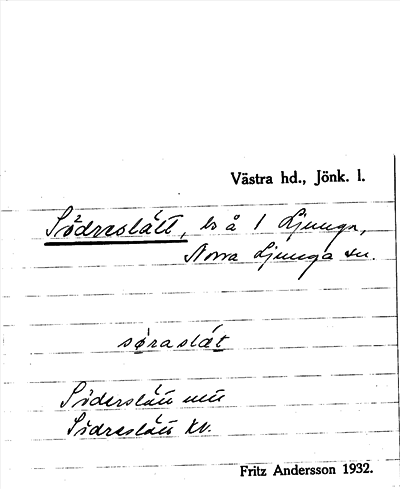 Västra hd., Jönk. l.
Södreslätt, ls å 1 Ljunga,
Norra Ljunga sn.
søraslæt
Söderslätt utt
Södreslätt kv.
Fritz Andersson 1932.